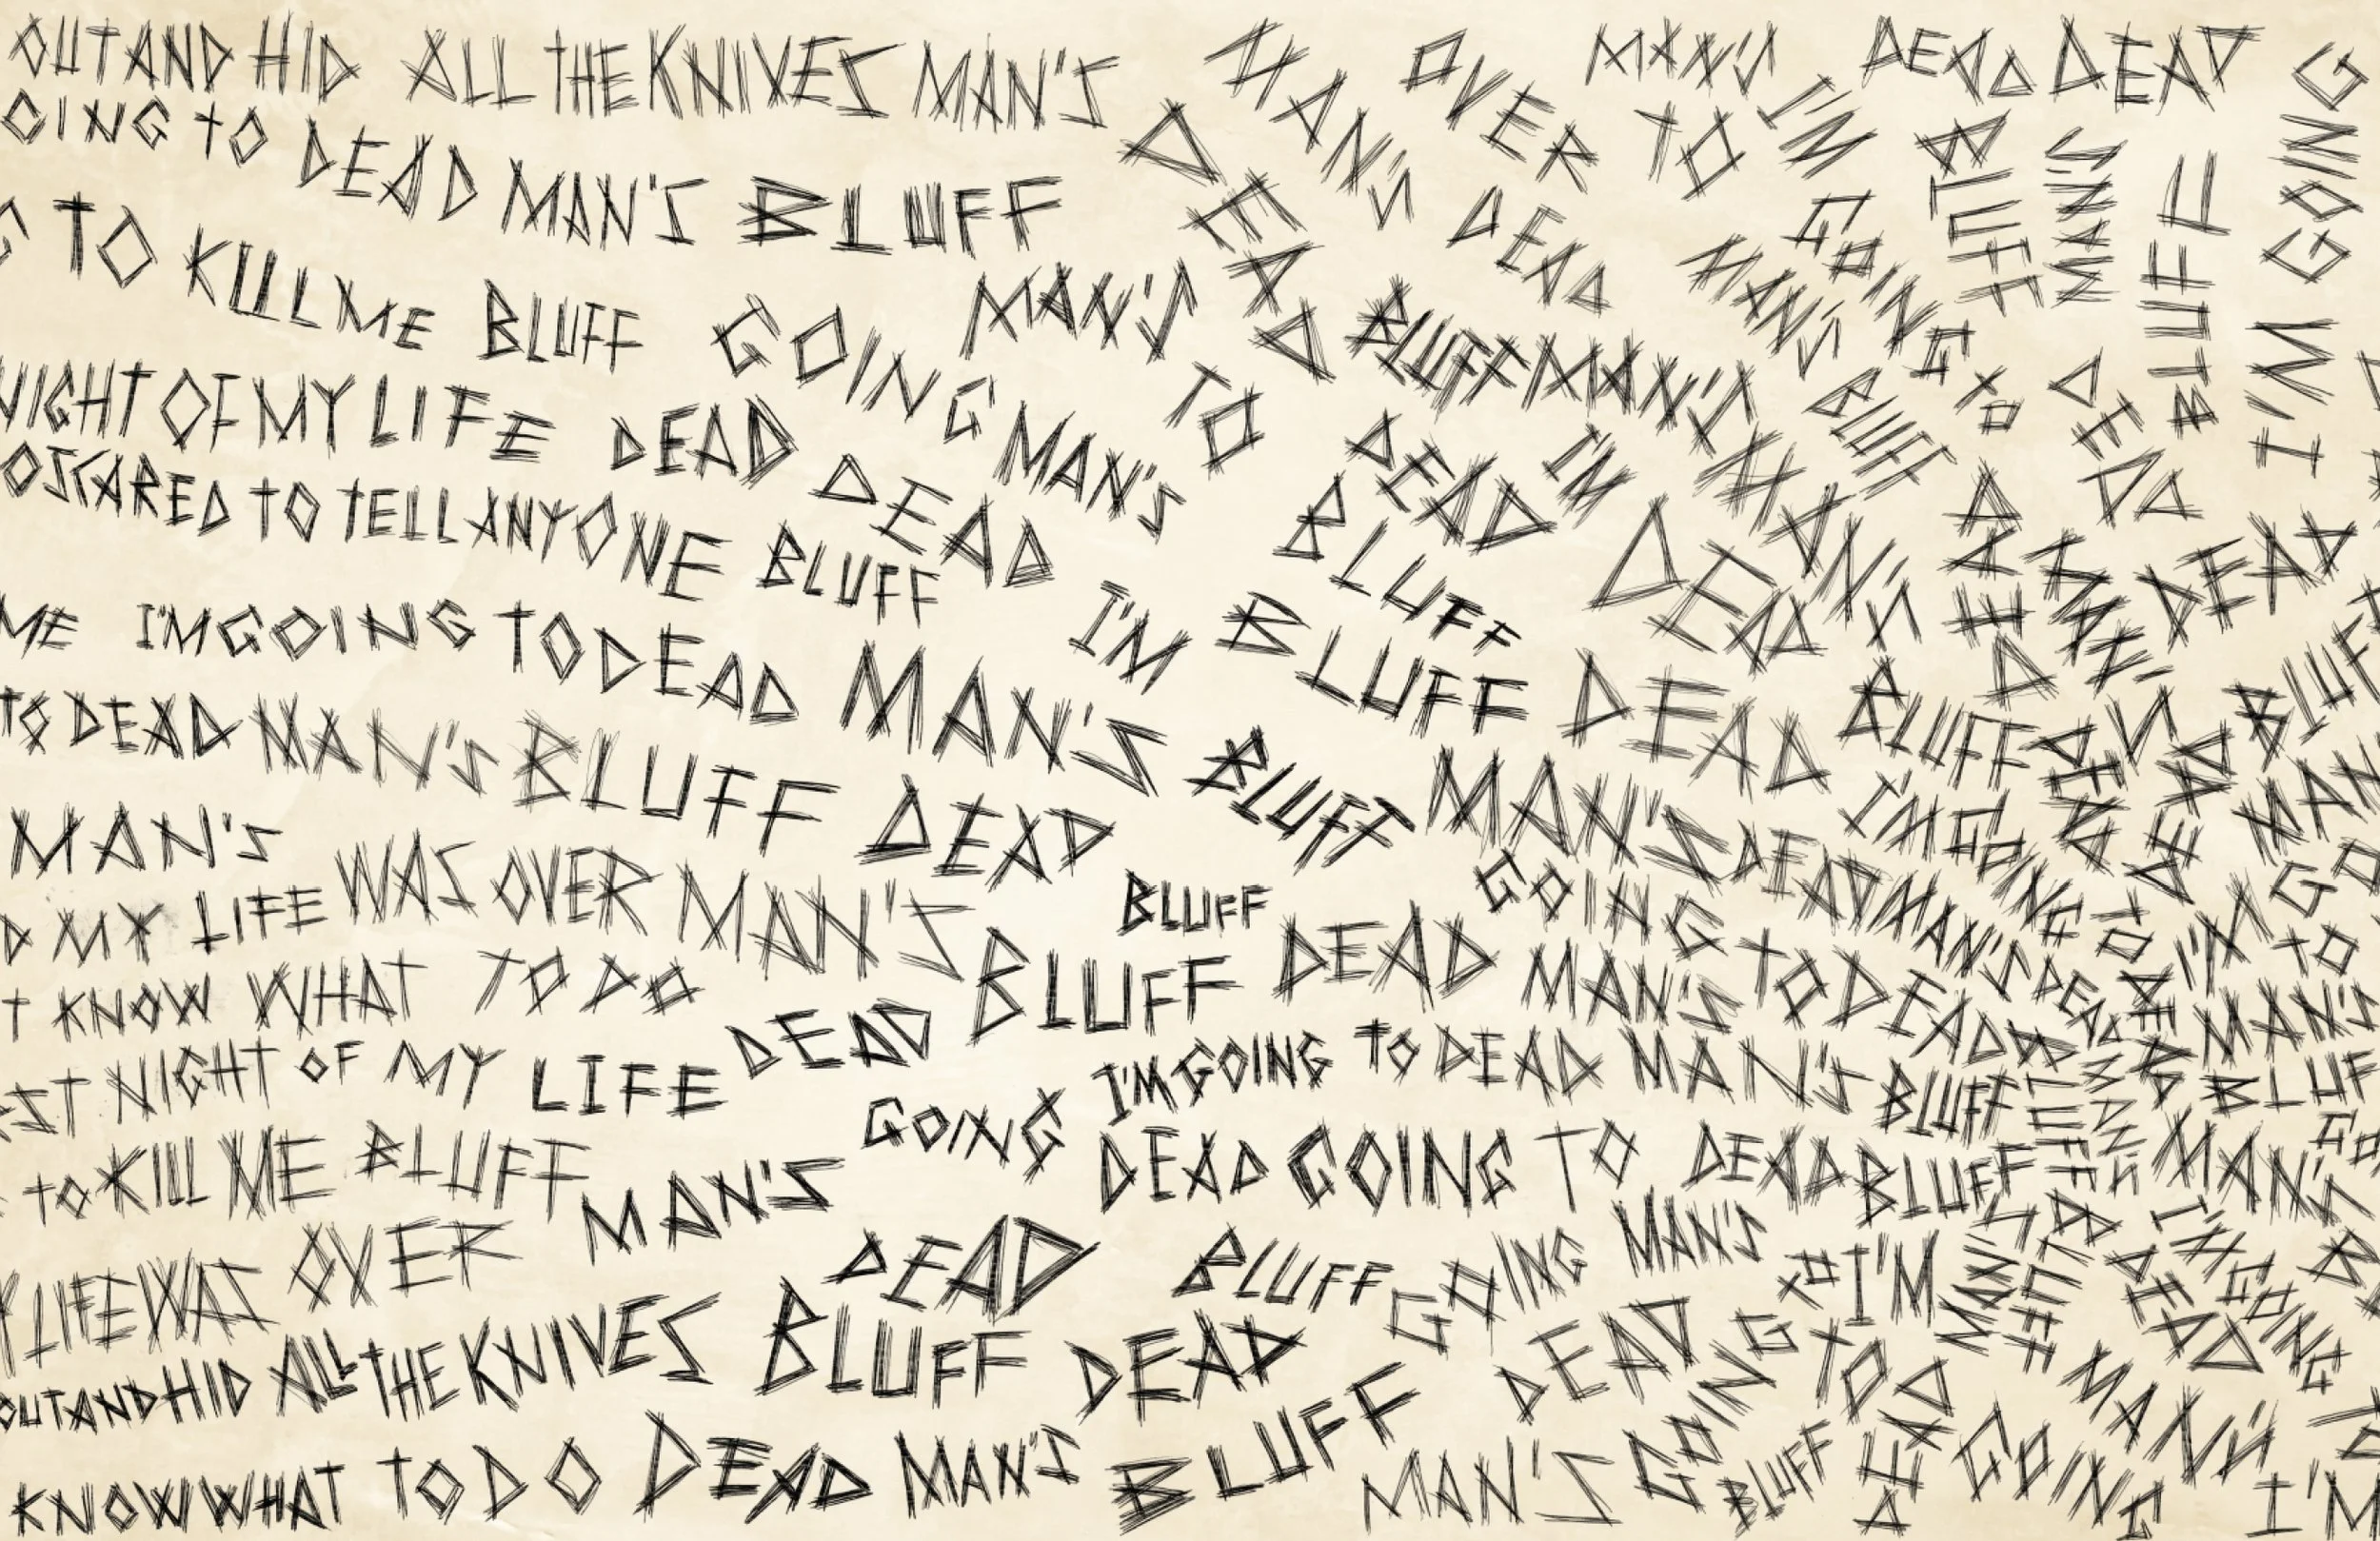 OUT AND HID ALL THE KNIVES MAN'S
OING TO DEAD MAN'S BLUFF
TO KILL ME BLUFF GOING MAN'S
NIGHT OF MY LIFE DEAD DEAD MAN'S
O SCARED TO TELL ANYONE BLUFF
ME I'M GOING TO DEAD MAN'S
TO DEAD MAN'S BLUFF DEAD
MAN'S
D MY LIFE WAS OVER MAN'S BLUFF
T KNOW WHAT TO DO DEAD
ST NIGHT OF MY LIFE
TO KILL ME BLUFF MAN'S GOING
Y LIFE WAS OVER DEAD
OUT AND HID ALL THE KNIVES BLUFF DEAD
KNOW WHAT TO DO DEAD MAN'S BLUFF
MAN'S OVER MAN'S DEAD DEAD
DEAD TO I'M BLUFF MAN'S BLUFF I'M GOING
DEAD GOING TO
BLUFF MAN'S MAN'S BLUFF DEAD
TO DEAD I'M MAN'S DEAD
BLUFF DEAD MAN'S DEAD
I'M BLUFF DEAD BLUFF DEAD DEAD BLUFF
BLUFF MAN'S DEAD MAN'S I'M GOING TO DEAD
BLUFF DEAD GOING TO DEAD BLUFF I'M GO TO
MAN'S DEAD MAN'S
I'M GOING TO DEAD MAN'S BLUFF MAN'S BLUF
DEAD GOING TO DEAD BLUFF MAN'S
BLUFF GOING MAN'S TO I'M MAN'S BLUFF DEAD I'M GOING
DEAD GOING TO DEAD MAN'S
MAN'S BLUFF GOING I'M